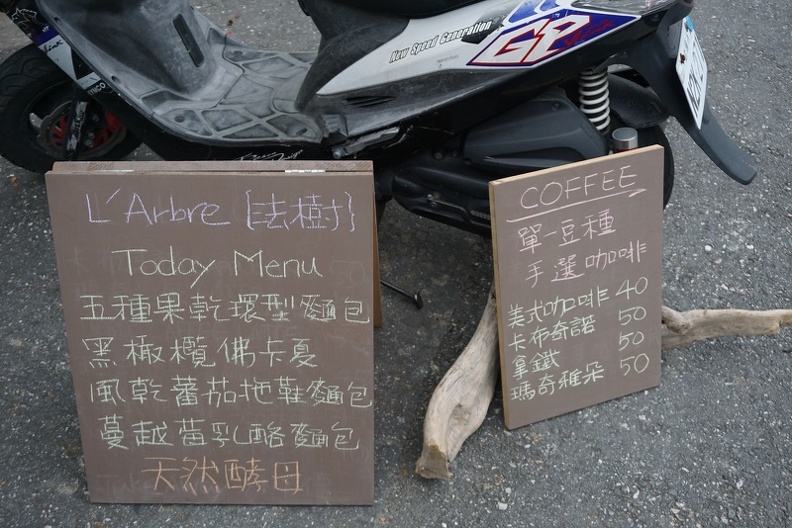 New Speed Generation
GP
L'Arbre {法樹}
Today Menu
五種果乾環型麵包
黑橄欖佛卡夏
風乾蕃茄拖鞋麵包
蔓越莓乳酪麵包
天然酵母
COFFEE
單一豆種
手選咖啡
美式咖啡 40
卡布奇諾 50
拿鐵 50
瑪奇雅朵 50